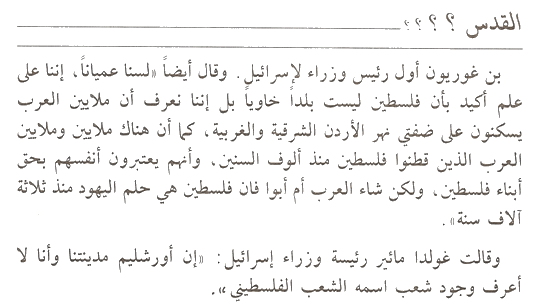 القدس ؟ ؟ ؟ ؟
بن غوريون أول رئيس وزراء لإسرائيل. وقال أيضاً «لسنا عمياناً، إننا على
علم أكيد بأن فلسطين ليست بلداً خاوياً بل إننا نعرف أن ملايين العرب
يسكنون على ضفتي نهر الأردن الشرقية والغربية، كما أن هناك ملايين وملايين
العرب الذين قطنوا فلسطين منذ ألوف السنين، وأنهم يعتبرون أنفسهم بحق
أبناء فلسطين، ولكن شاء العرب أم أبوا فان فلسطين هي حلم اليهود منذ ثلاثة
آلاف سنة».
وقالت غولدا مائير رئيسة وزراء إسرائيل: «إن أورشليم مدينتنا وأنا لا
أعرف وجود شعب اسمه الشعب الفلسطيني».